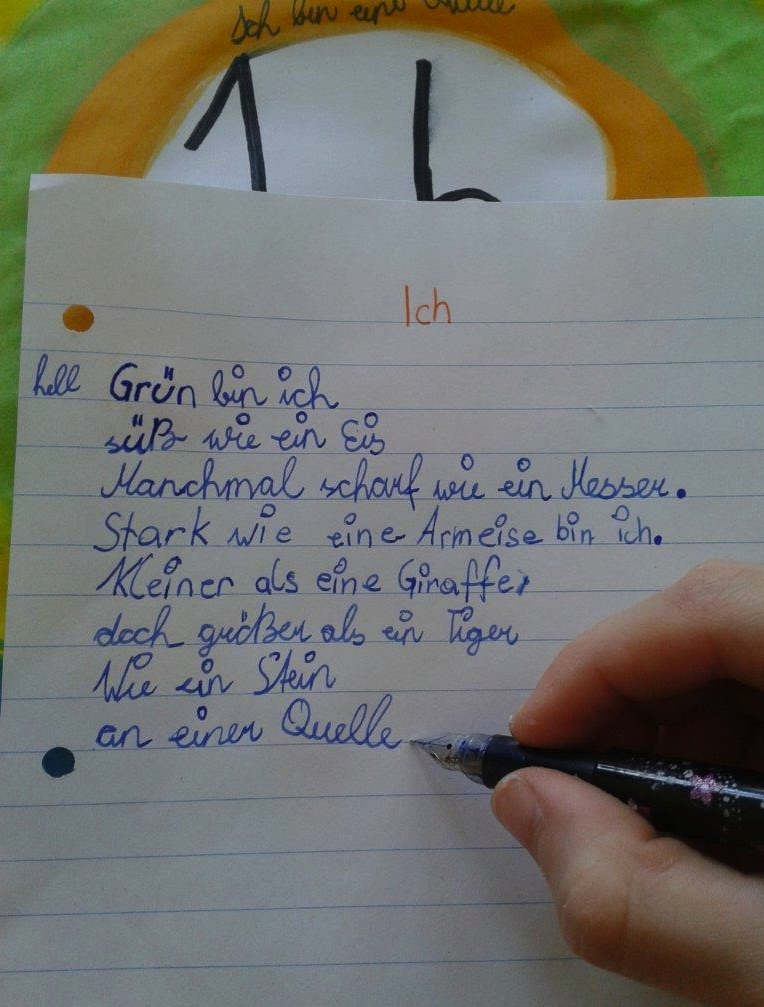 Ich bin eine Quelle
1 b
Ich
hell Grün bin ich
süß wie ein Eis
Manchmal scharf wie ein Messer.
Stark wie eine Armeise bin ich.
Kleiner als eine Giraffe,
doch größer als ein Tiger
Wie ein Stein
an einer Quelle